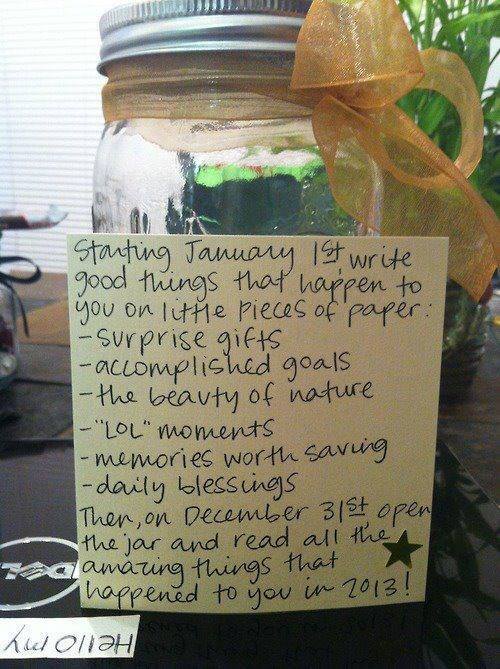 Starting January 1st write
good things that happen to
you on little pieces of paper:
- surprise gifts
- accomplished goals
- the beauty of nature
- "LOL" moments
- memories worth saving
- daily blessings
Then, on December 31st, open
the jar and read all the
amazing things that
happened to you in 2013!
DELL
Hello my